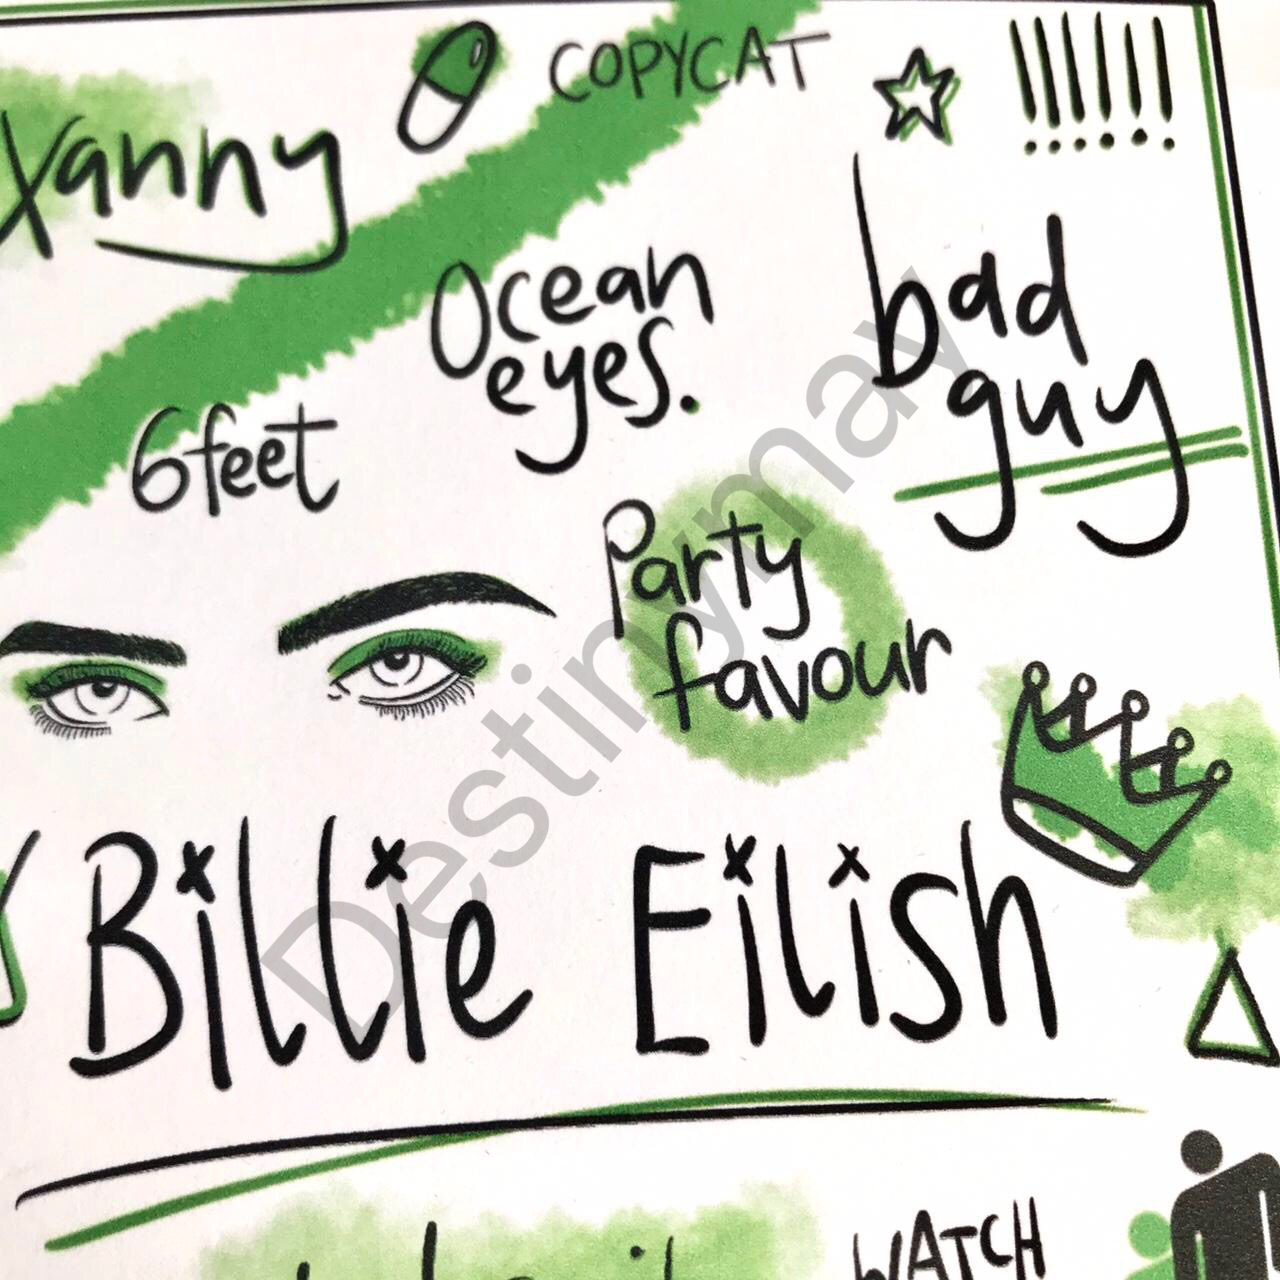 COPYCAT
!!!!!!
Xanny
Ocean
eyes.
bad
guy
6feet
Party
favour
Billie Eilish
WATCH
Destinymay